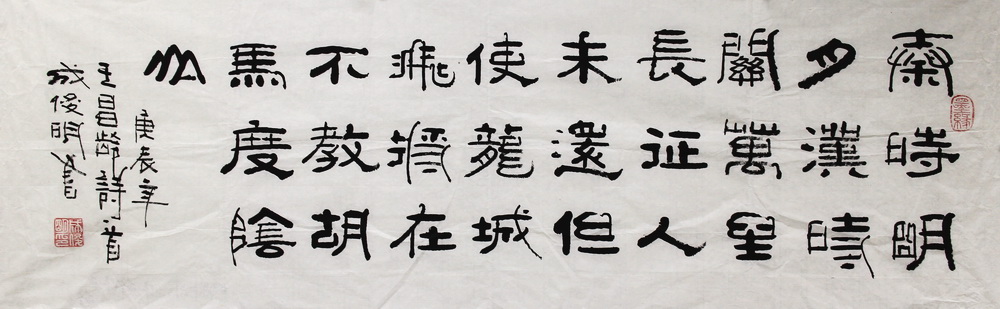 秦時明
月漢時
關萬里
長征人
未還但
使龍城
飛將在
不教胡
馬度陰
山
庚辰年
王昌齡詩一首
成俊明書